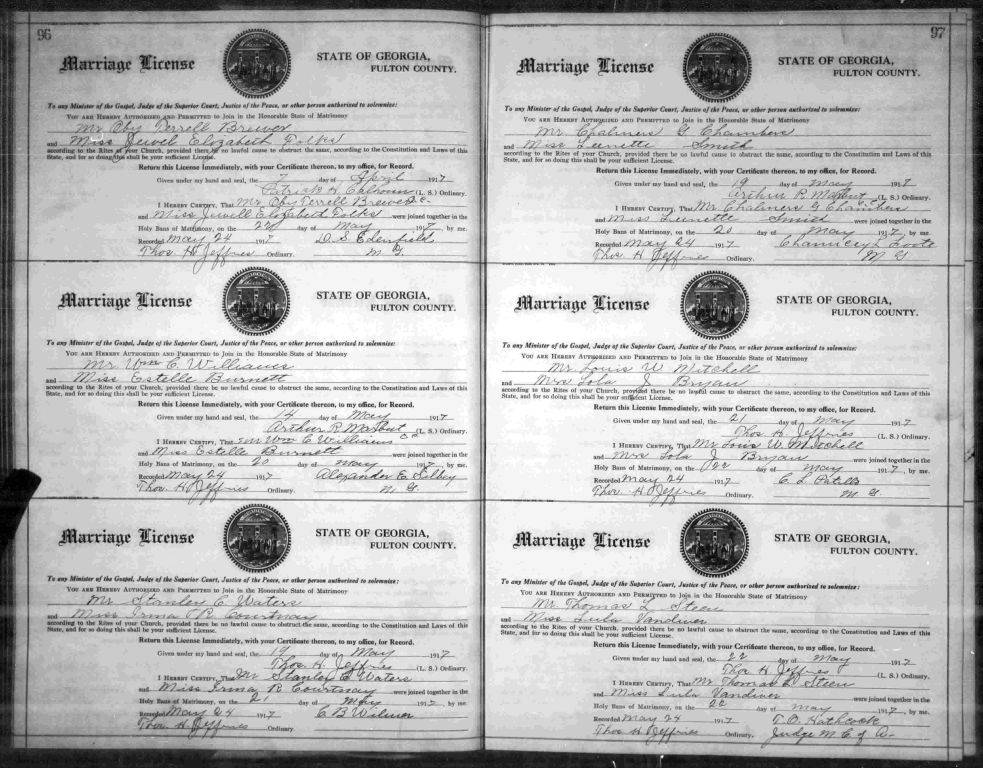 96
Marriage License
STATE OF GEORGIA,
FULTON COUNTY.
To any Minister of the Gospel, Judge of the Superior Court, Justice of the Peace, or other person authorized to solemnize:
YOU ARE HEREBY AUTHORIZED AND PERMITTED to Join in the Honorable State of Matrimony
Mr Oby Terrell Brewer
and Miss Jewel Elizabeth Folks
according to the Rites of your Church, provided there be no lawful cause to obstruct the same, according to the Constitution and Laws of this
State, and for so doing this shall be your sufficient License.
Return this License Immediately, with your Certificate thereon, to my office, for Record.
Given under my hand and seal, the 7 day of April 1917
Patrick H. Calhoun (L. S.) Ordinary.
I HEREBY CERTIFY, That Mr Oby Terrell Brewer
and Miss Jewell Elizabeth Folks were joined together in the
Holy Bans of Matrimony, on the day of May 1917, by me.
Recorded May 24 1917 D. S. Edenfield
Thos H Jeffries Ordinary. M. G.
Marriage License
STATE OF GEORGIA,
FULTON COUNTY.
To any Minister of the Gospel, Judge of the Superior Court, Justice of the Peace, or other person authorized to solemnize:
YOU ARE HEREBY AUTHORIZED AND PERMITTED to Join in the Honorable State of Matrimony
Mr Wm C. Williams
and Miss Estelle Burnett
according to the Rites of your Church, provided there be no lawful cause to obstruct the same, according to the Constitution and Laws of this
State, and for so doing this shall be your sufficient License.
Return this License Immediately, with your Certificate thereon, to my office, for Record.
Given under my hand and seal, the 14 day of May 1917
Arthur R. (L. S.) Ordinary.
I HEREBY CERTIFY, That Mr Wm C Williams
and Miss Estelle Burnett were joined together in the
Holy Bans of Matrimony, on the 20 day of May 1917, by me.
Recorded May 24 1917 Alexander E.
Thos H. Jeffries Ordinary. M. G.
Marriage License
STATE OF GEORGIA,
FULTON COUNTY.
To any Minister of the Gospel, Judge of the Superior Court, Justice of the Peace, or other person authorized to solemnize:
YOU ARE HEREBY AUTHORIZED AND PERMITTED to Join in the Honorable State of Matrimony
Mr Stanley C Waters
and Miss Irma R Courtnay
according to the Rites of your Church, provided there be no lawful cause to obstruct the same, according to the Constitution and Laws of this
State, and for so doing this shall be your sufficient License.
Return this License Immediately, with your Certificate thereon, to my office, for Record.
Given under my hand and seal, the 19 day of May 1917
Thos. H. Jeffries (L. S.) Ordinary.
I HEREBY CERTIFY, That Mr Stanley C Waters
and Miss Irma R Courtnay were joined together in the
Holy Bans of Matrimony, on the day of May 1917, by me.
Recorded May 24 1917 C B Wilmer
Thos H Jeffries Ordinary
97
Marriage License
STATE OF GEORGIA,
FULTON COUNTY.
To any Minister of the Gospel, Judge of the Superior Court, Justice of the Peace, or other person authorized to solemnize:
YOU ARE HEREBY AUTHORIZED AND PERMITTED to Join in the Honorable State of Matrimony
Mr Chalmers G Chambers
and Miss Lunette Smith
according to the Rites of your Church, provided there be no lawful cause to obstruct the same, according to the Constitution and Laws of this
State, and for so doing this shall be your sufficient License.
Return this License Immediately, with your Certificate thereon, to my office, for Record.
Given under my hand and seal, the 19 day of May 1917
Arthur R. (L. S.) Ordinary.
I HEREBY CERTIFY, That Mr Chalmers G Chambers
and Miss Lunette Smith were joined together in the
Holy Bans of Matrimony, on the 20 day of May 1917, by me.
Recorded May 24 1917 Foote
Thos H Jeffries Ordinary. M G
Marriage License
STATE OF GEORGIA,
FULTON COUNTY.
To any Minister of the Gospel, Judge of the Superior Court, Justice of the Peace, or other person authorized to solemnize:
YOU ARE HEREBY AUTHORIZED AND PERMITTED to Join in the Honorable State of Matrimony
Mr Louis W Mitchell
and Mrs Lola J Bryan
according to the Rites of your Church, provided there be no lawful cause to obstruct the same, according to the Constitution and Laws of this
State, and for so doing this shall be your sufficient License.
Return this License Immediately, with your Certificate thereon, to my office, for Record.
Given under my hand and seal, the 21 day of May 1917
Thos. H. Jeffries (L. S.) Ordinary.
I HEREBY CERTIFY, That Mr Louis W. Mitchell
and Mrs Lola J Bryan were joined together in the
Holy Bans of Matrimony, on the 22 day of May 1917, by me.
Recorded May 24 1917 C. L.
Thos. H Jeffries Ordinary. M G.
Marriage License
STATE OF GEORGIA,
FULTON COUNTY.
To any Minister of the Gospel, Judge of the Superior Court, Justice of the Peace, or other person authorized to solemnize:
YOU ARE HEREBY AUTHORIZED AND PERMITTED to Join in the Honorable State of Matrimony
Mr Thomas L Steen
and Miss Lula Vandiver
according to the Rites of your Church, provided there be no lawful cause to obstruct the same, according to the Constitution and Laws of this
State, and for so doing this shall be your sufficient License.
Return this License Immediately, with your Certificate thereon, to my office, for Record.
Given under my hand and seal, the 22 day of May 1917
Thos H Jeffries (L. S.) Ordinary.
I HEREBY CERTIFY, That Mr Thomas L Steen
and Miss Lula Vandiver were joined together in the
Holy Bans of Matrimony, on the 22 day of May 1917, by me.
Recorded May 24 1917 T. O. Hathcock
Thos H Jeffries Ordinary. Judge M C of A-